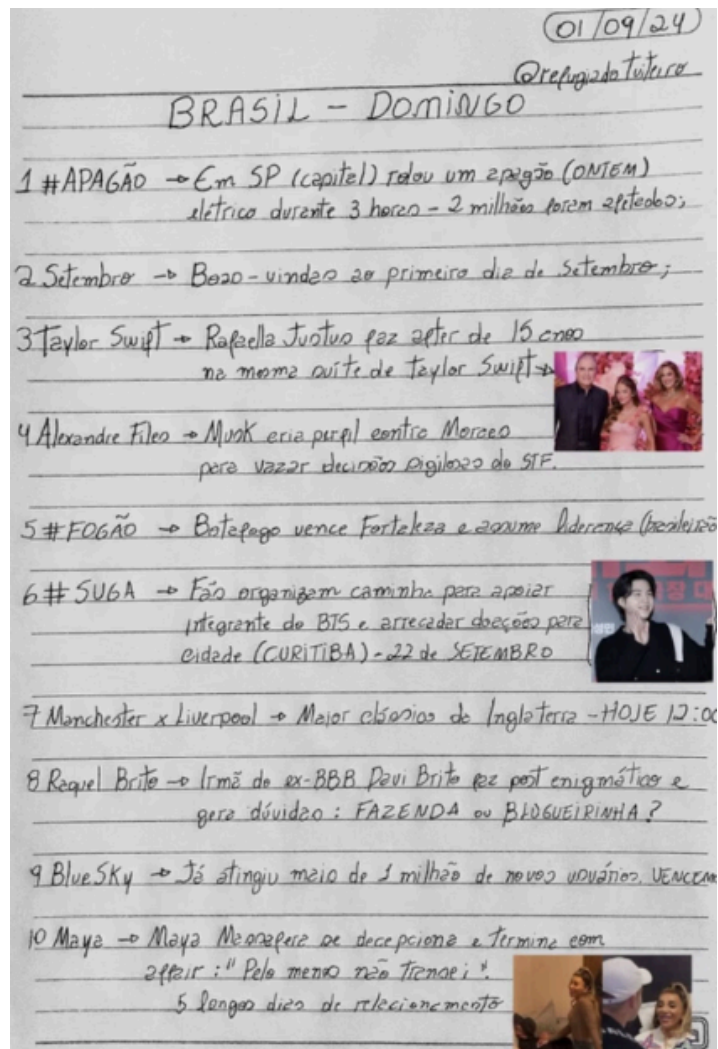 01/09/24
@refugiadotuiteiro
BRASIL - DOMINGO
1 #APAGÃO → Em SP (capital) rolou um apagão (ONTEM)
elétrico durante 3 horas - 2 milhões foram afetados;
2 Setembro → Boas-vindas ao primeiro dia de Setembro;
3 Taylor Swift → Rafaella Justus faz after de 15 anos
na mesma suíte de Taylor Swift →
4 Alexandre Files → Musk cria perfil contra Moraes
para vazar decisões sigilosas do STF.
5 #FOGÃO → Botafogo vence Fortaleza e assume liderança (brasileirão
6 #SUGA → Fãs organizam caminha para apoiar
integrante do BTS e arrecadar doações para
cidade (CURITIBA) - 22 de SETEMBRO
7 Manchester x Liverpool → Maior clássico da Inglaterra - HOJE 12:00
8 Raquel Brito → Irmã do ex-BBB Davi Brito faz post enigmático e
gera dúvidas: FAZENDA ou BLOGUEIRINHA?
9 BlueSky → Já atingiu mais de 1 milhão de novos usuários. VENCEM
10 Maya → Maya Massafera se decepciona e termina com
affair: "Pelo menos não transei".
5 longos dias de relacionamento